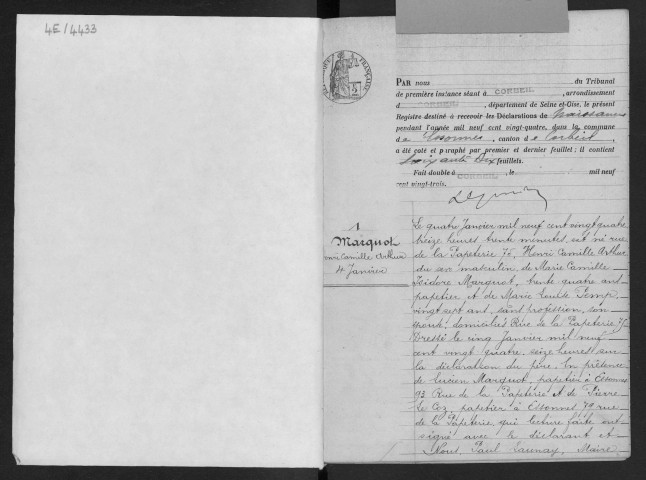 4E/4433
PAR nous du Tribunal
de première instance séant à CORBEIL, arrondissement
d CORBEIL, département de Seine-et-Oise, le présent
Registre destiné à recevoir les Déclarations de Naissances
pendant l'année mil neuf cent vingt-quatre, dans la commune
d'Essonnes, canton de Corbeil
a été coté et paraphé par premier et dernier feuillet; il contient
soixante Dix feuillets.
Fait double à CORBEIL, le mil neuf
cent vingt-trois.
1
Marquot
Henri Camille Arthur
4 Janvier
Le quatre Janvier mil neuf cent vingt quatre
seize heures trente minutes, est né rue
de la Papeterie 75, Henri Camille Arthur
du sexe masculin, de Marie Camille
Isidore Marquot, trente quatre ans
papetier et de Marie Louise
vingt sept ans, sans profession, son
épouse, domiciliés Rue de la Papeterie 75
Dressé le cinq Janvier mil neuf
cent vingt quatre, seize heures sur
la déclaration du père. En présence
de Lucien Marquot, papetier à Essonnes
93 Rue de la Papeterie et de Pierre
Le Coz, papetier à Essonnes 70 rue
de la Papeterie, qui lecture faite ont
signé avec le déclarant et
Nous, Paul Launay, Maire